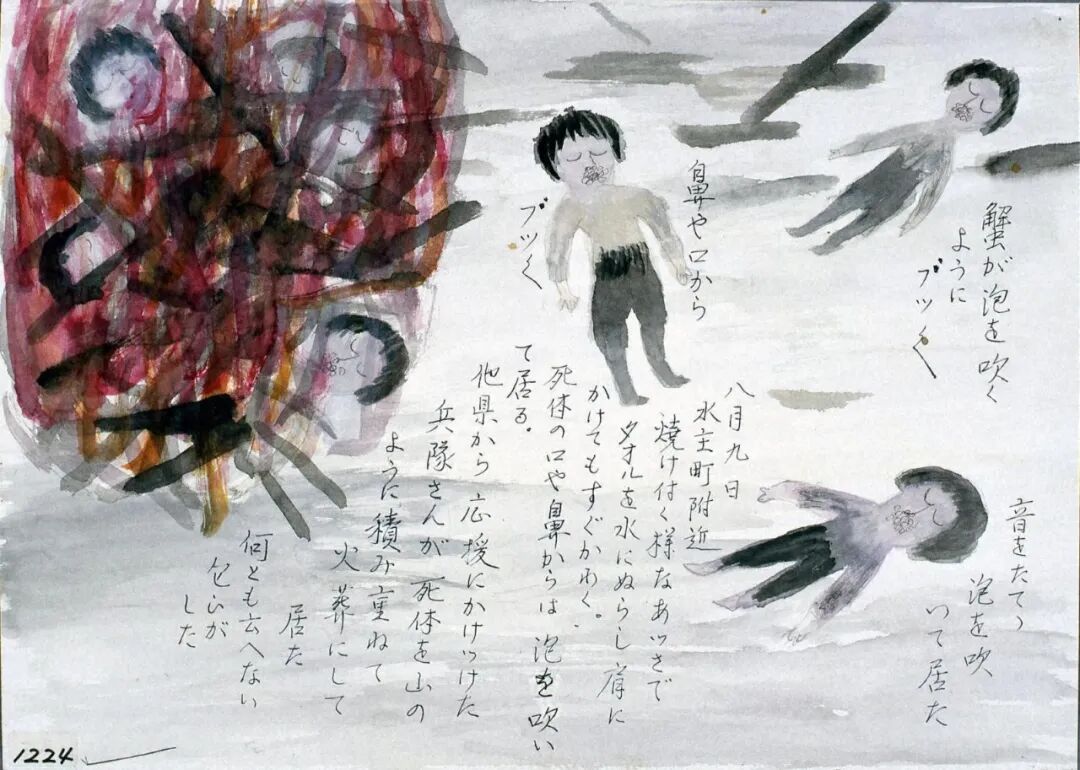 蟹が泡を吹く
ように
ブツ〱
音をたてゝ
泡を吹
いて居た
鼻や口から
ブツ〱
八月九日
水主町附近
焼け付く様なあつさで
タオルを水にぬらし肩に
かけてもすぐかわく。
死体の口や鼻からは泡を吹い
て居る。
他県から応援にかけつけた
兵隊さんが死体を山の
ように積み重ねて
火葬にして
居た
何とも云へない
匂いが
した
1224